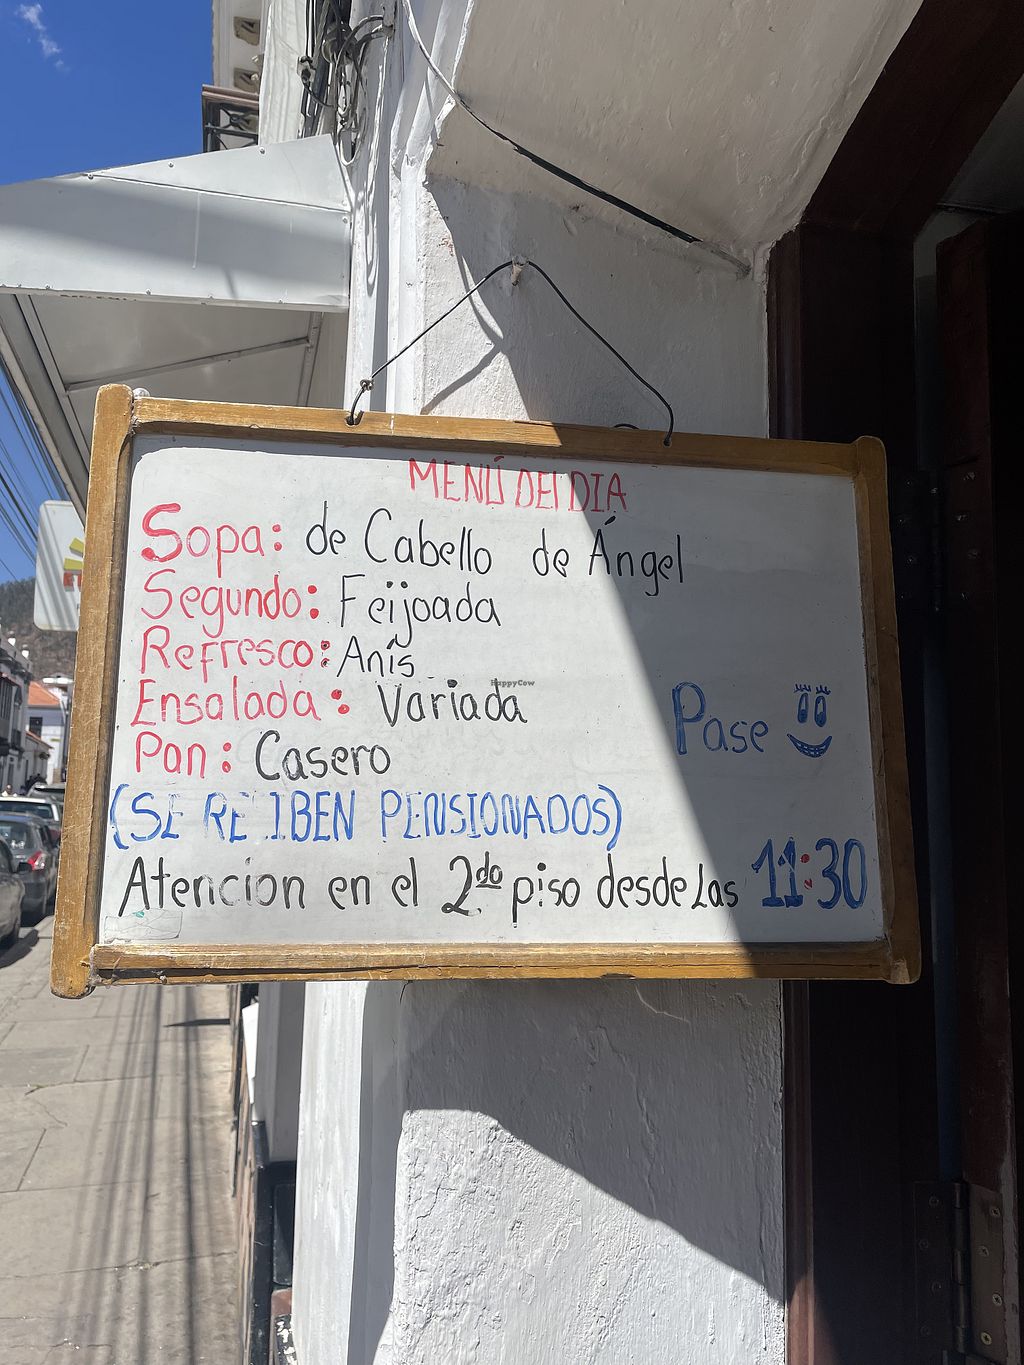 MENÚ DEl DIA
Sopa: de Cabello de Ángel
Segundo: Feijoada
Refresco: Anís
Ensalada: Variada
HappyCow
Pase
Pan: Casero
(SE RECIBEN PENSIONADOS)
Atencion en el 2do piso desde Las 11:30